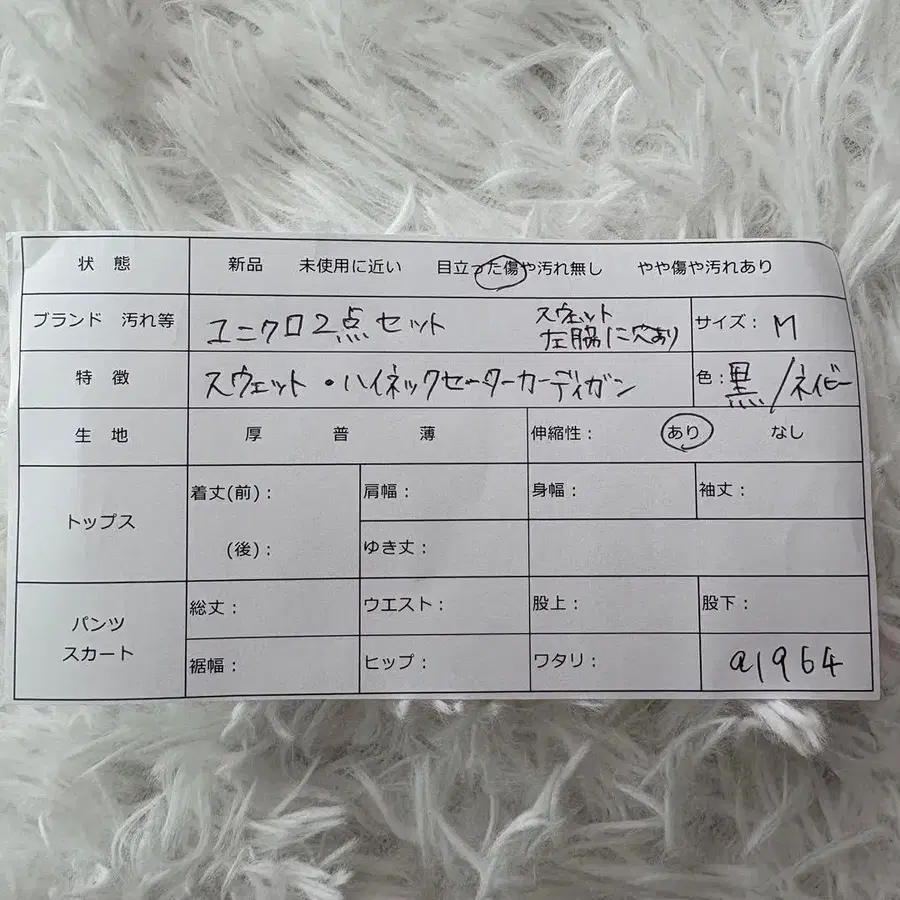 状 態 新品 未使用に近い 目立った傷や汚れ無し やや傷や汚れあり
ブランド 汚れ等 ユニクロ2点セット スウェット 左脇に穴あり サイズ: M
特 徴 スウェット・ハイネックセーターカーディガン 色:黒/ネイビー
生 地 厚 普 薄 伸縮性: あり なし
トップス 着丈(前): 肩幅: 身幅: 袖丈:
(後): ゆき丈:
パンツ スカート 総丈: ウエスト: 股上: 股下:
裾幅: ヒップ: ワタリ: a1964